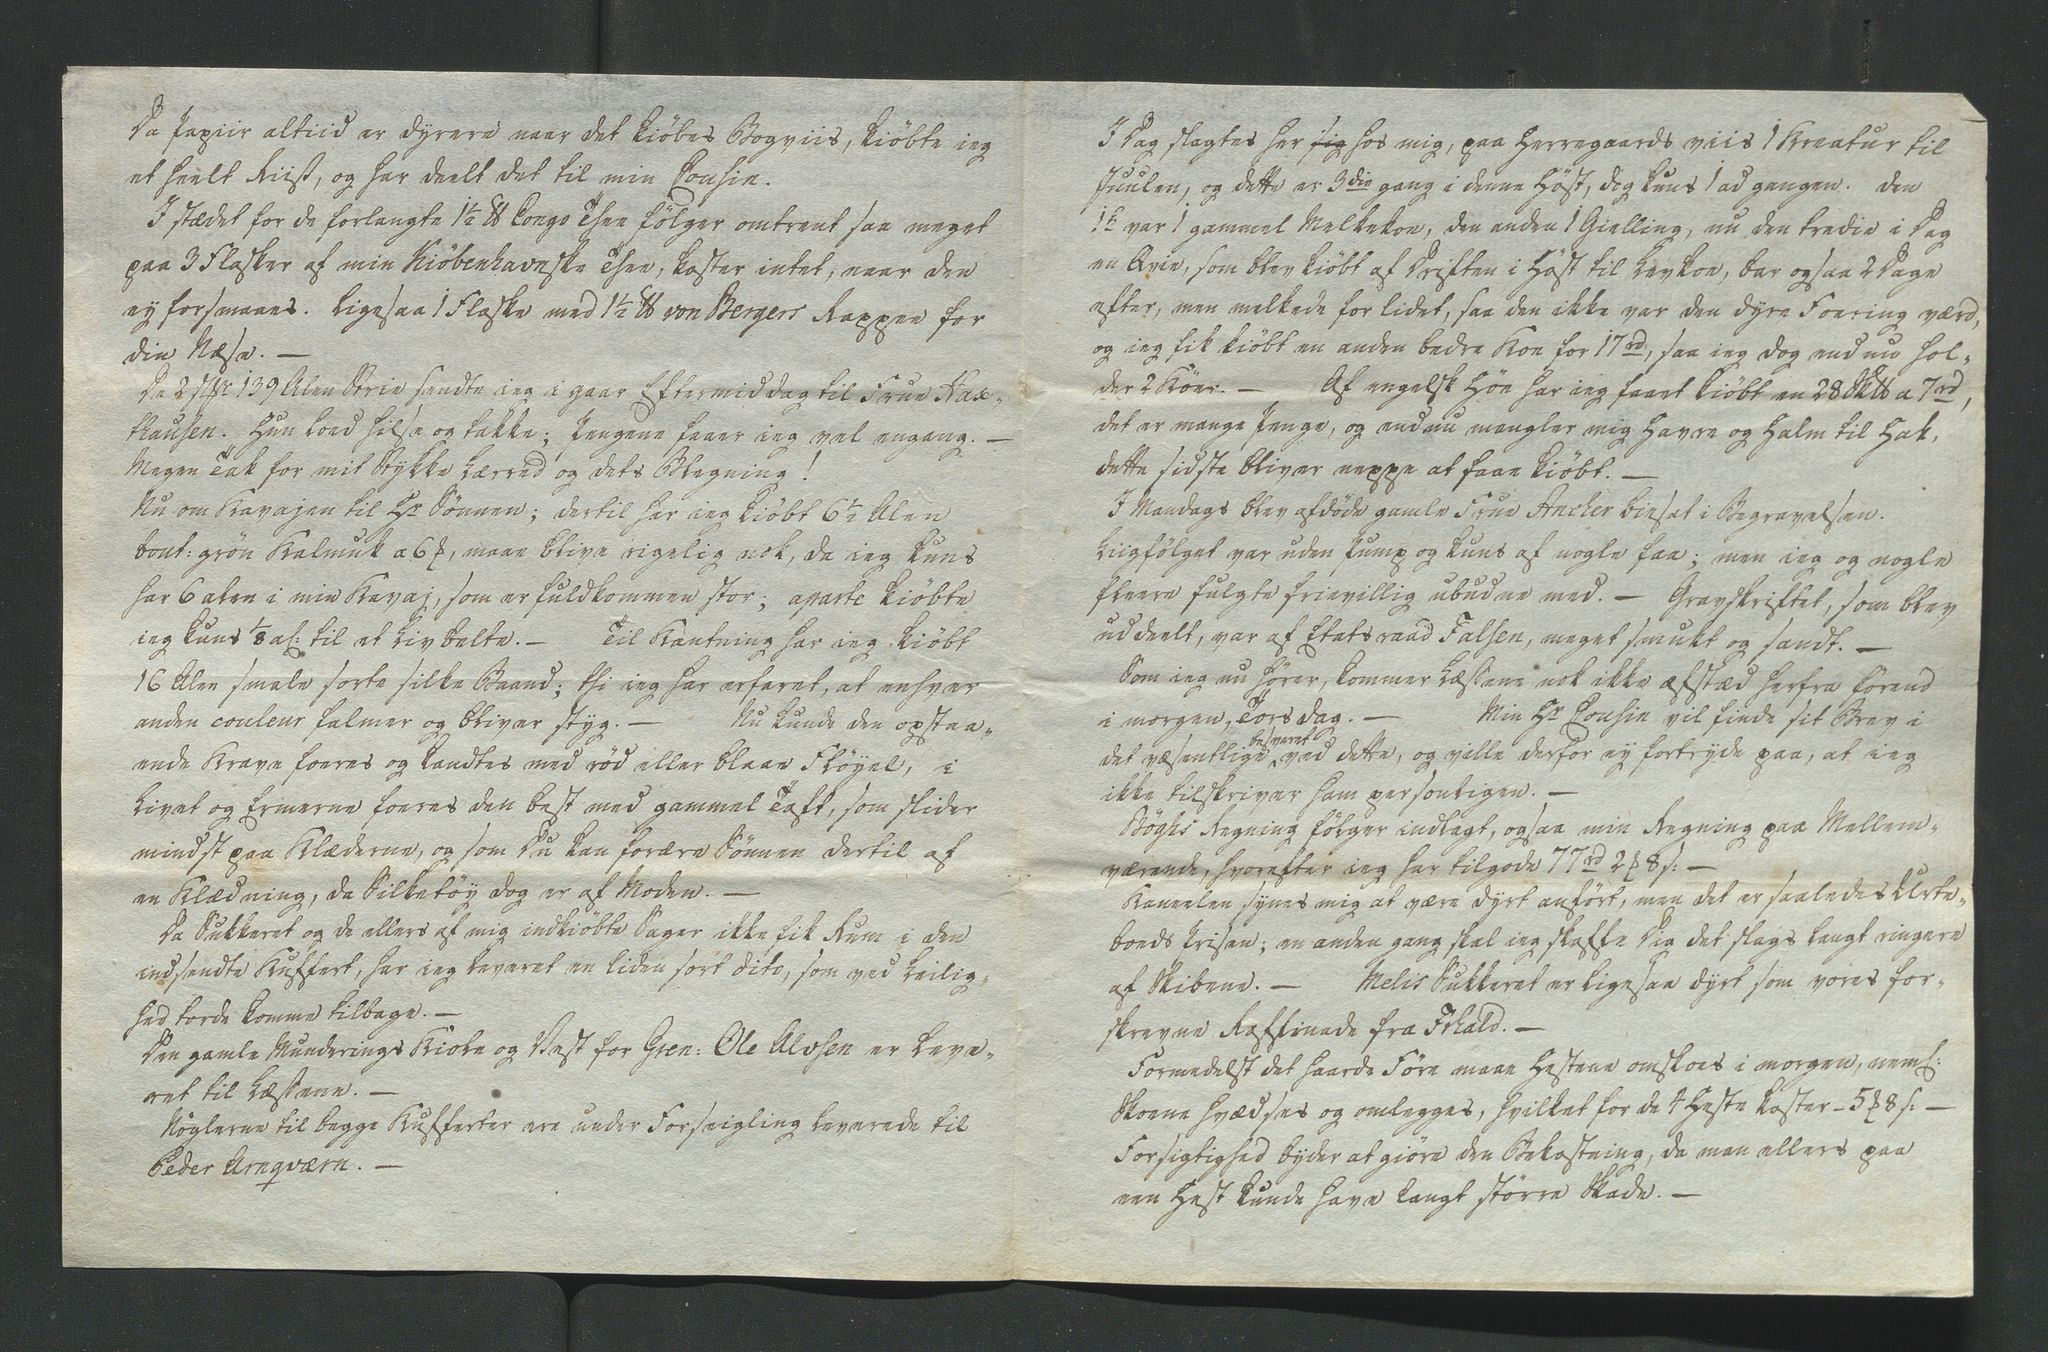 Da Papiir altiid er dyrere naar det kiöbes Bogviis, kiöbte ieg
et heelt Riiß, og har deelt det til min Cousin.
I stædet for de forlangte 1½ ℔ Congo Thee fölger omtrent saa meget
paa 3 Flasker af min Kiöbenhavnske Thee, koster intet, naar den
ey forsmaaes. Ligesaa 1 Flaske med 1½ ℔ von Bergers Rappee for
din Næse. —
De 2 Skr 139 Alen Strie sendte ieg i gaar Eftermiddag til Frue Hax-
thausen. Hun loed hilse og takke; Pengene faaer ieg vel engang. —
Megen Tak for mit Stykke Lærred og dets Blegning!
Nu om Kavajen til Hr Sönnen; dertil har ieg kiöbt 6½ Alen
bout: grön Kalmuk a 6 ꝑ, maae blive rigelig nok, da ieg kuns
har 6 alen i min Kavaj, som er fuldkommen stor; aparte kiöbte
ieg kuns ⅛ al: til et Livbelte. — Til Kantning har ieg kiöbt
16 Alen smale sorte silke Baand; thi ieg har erfaret, at enhver
anden couleur falmer og bliver styg. — Nu kunde den opstaa-
ende Krave foeres og kandtes med röd eller blaae Flöyel, i
Livet og Ermerne foeres den best med gammel Taft, som slider
mindst paa Klæderne, og som Du kan forære Sönnen dertil af
en Klædning, da Silketöy dog er af Moden. —
Da Sukkeret og de ellers af mig indkiöbte Sager ikke fik Rum i den
indsendte Kuffert, har ieg leveret en liden sort dito, som ved Leilig-
hed torde komme tilbage. —
Den gamle Munderings Kiole og Vest for Gren: Ole Alvsen er leve-
ret til Læssene. —
Nöglerne til begge Kufferter ere under Forseigling leverede til
Peder Arnqværn. —
I Dag slagtes her sig hos mig, paa Herregaards viis 1 Kreatur til
Juulen, og dette er 3die gang i denne Höst, dog kuns 1 ad gangen. Den
1te var 1 gammel Melkekoe, den anden 1 Gielling, nu den tredie i Dag
en Qvie, som blev kiöbt af Driften i Höst til Levkoe, bar ogsaa 2 Dage
efter, men melkede for lidet, saa den ikke var den dyre Foering værd,
og ieg fik kiöbt en anden bedre Koe for 17 rd, saa ieg dog endnu hol-
der 2 Köer. — Af engelsk Höe har ieg faaet kiöbt en 28 Sk℔ a 7 rd,
det er mange Penge, og endnu mangler mig Havre og Halm til Hak,
dette sidste bliver neppe at faae kiöbt. —
I Mandags blev afdöde gamle Frue Ancher biesat i Begravelsen.
Liigfölget var uden Pump og kuns af nogle faa; men ieg og nogle
fleere fulgte frievillig ubudne med. — Gravskriftet, som blev
uddeelt, var af Etatsraad Falsen, meget smukt og sandt. —
Som ieg nu hörer, kommer Læssene nok ikke afstæd herfra förend
i morgen, Torsdag. — Min Hr Cousin vil finde sit Brev i
det væsentlige besvaret ved dette, og ville derfor ey fortryde paa, at ieg
ikke tilskriver ham personligen. —
Böghs Regning fölger indlagt, ogsaa min Regning paa Mellem-
værende, hvorefter ieg har tilgode 77 rd 2 ꝑ 8 s: —
Kaneelen synes mig at være dyrt anfört, men det er saaledes Urte-
boeds Prisen; en anden gang skal ieg skaffe Dig det slags langt ringere
af Skibene. — Melis Sukkeret er ligesaa dyrt som vores for-
skrevne Raffinade fra Frhald. —
Formedelst det haarde Före maae Hestene omskoes i morgen, neml:
Skoene hvædses og omlegges, hvilket for de 4 Heste koster - 5 ꝑ 8 s: —
Forsigtighed byder at giöre den Bekostning, da man ellers paa
een Hest kunde have langt större Skade. —